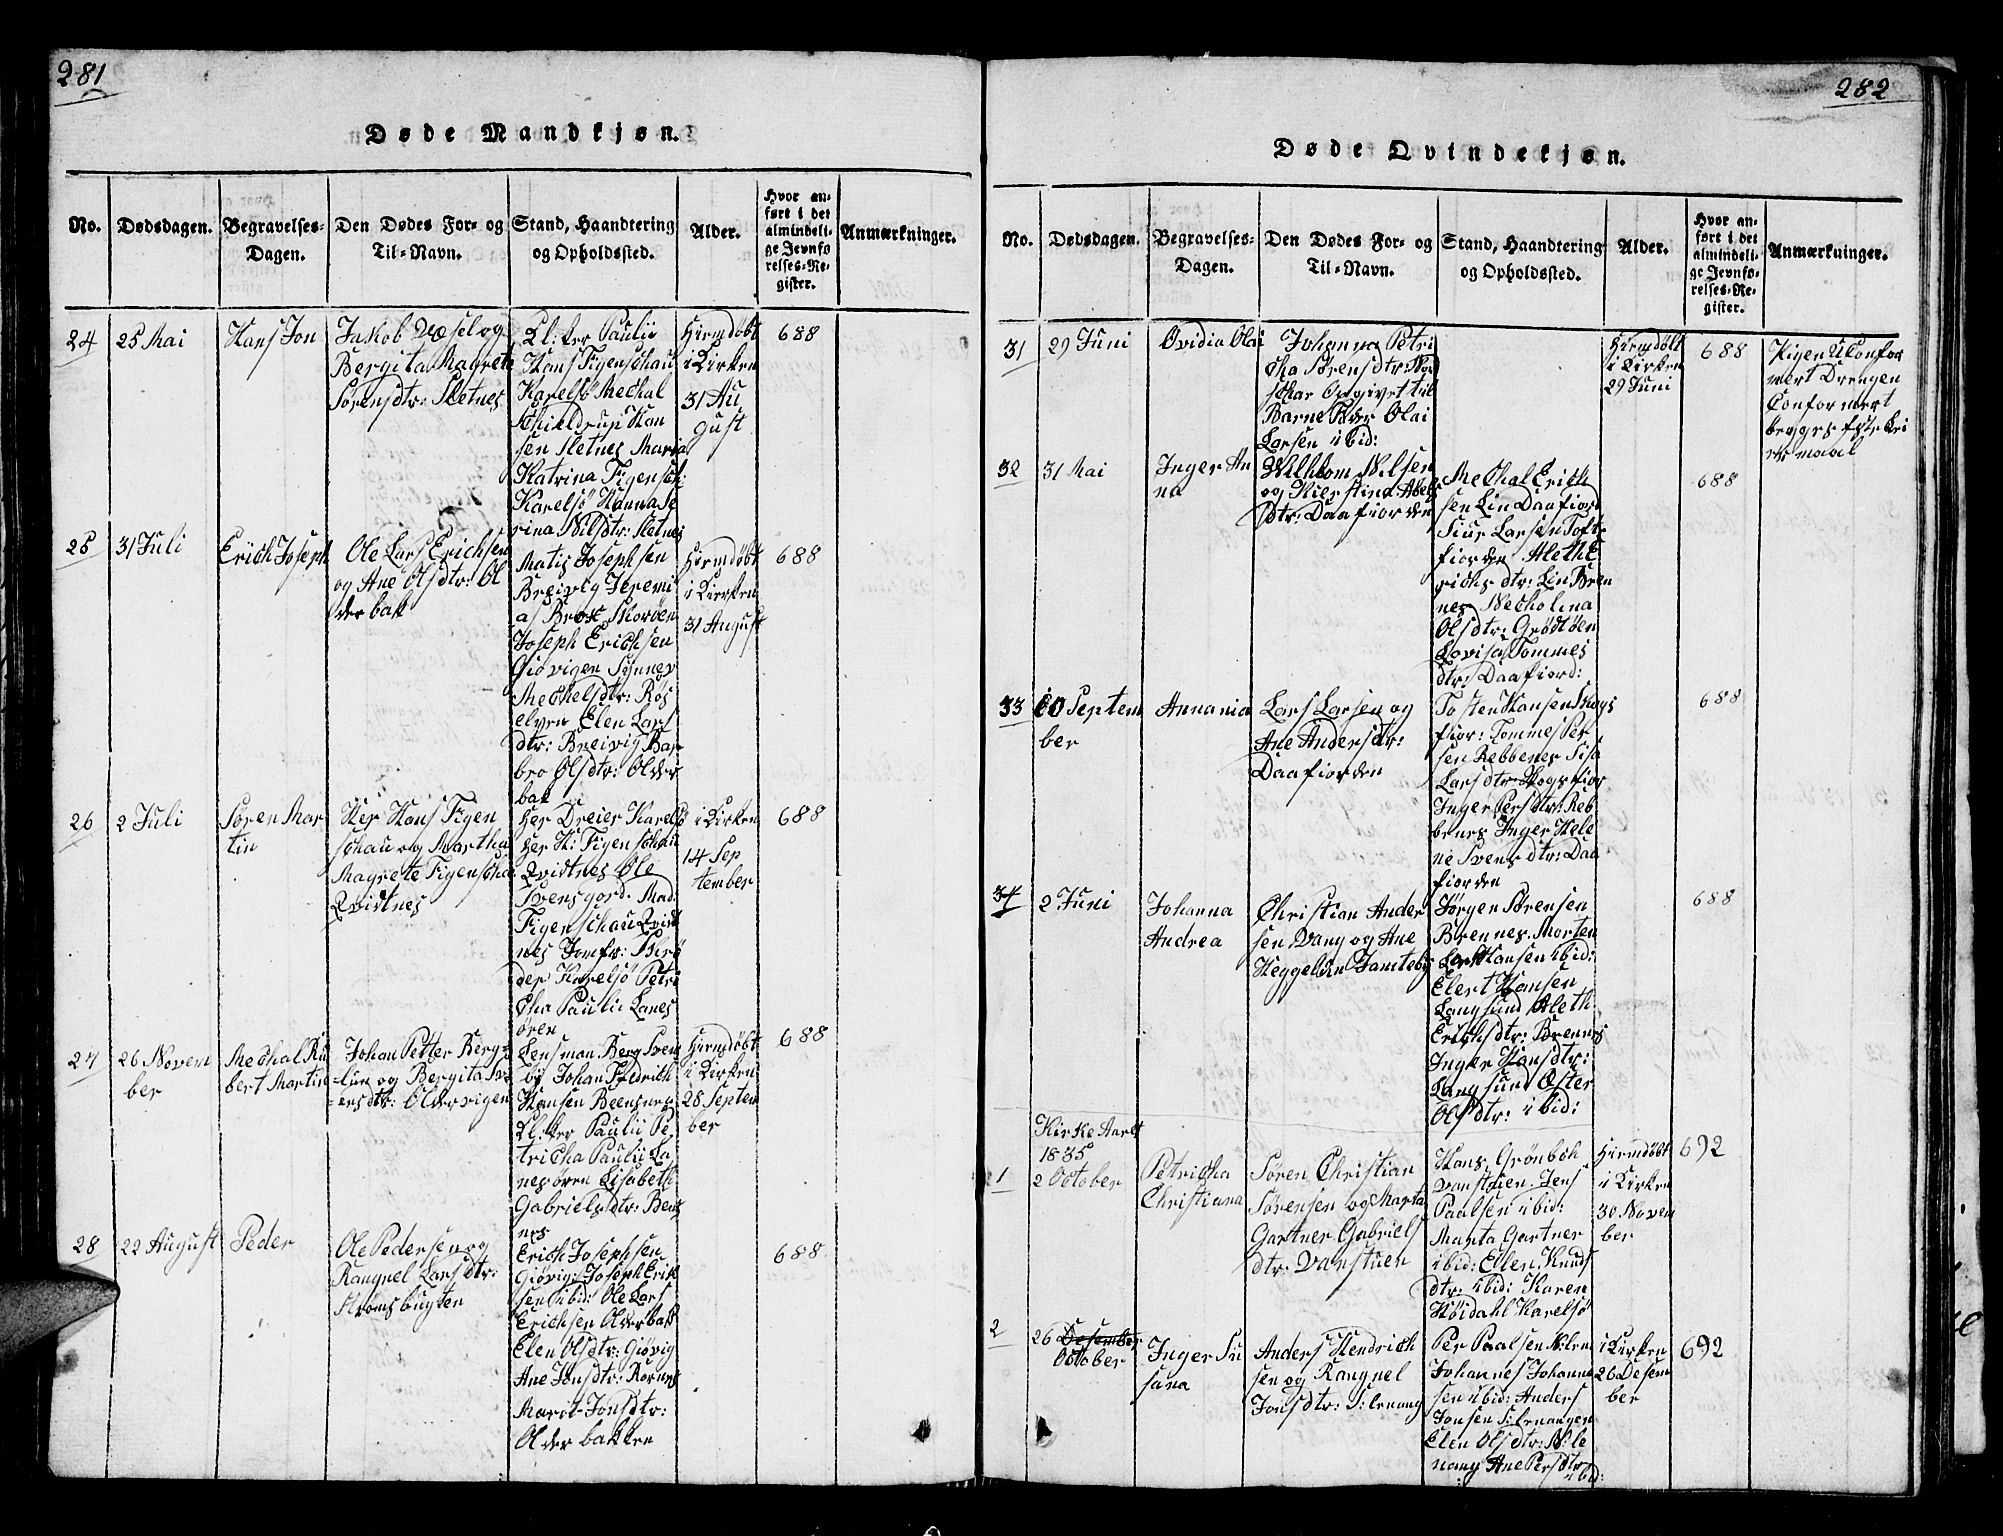 281
Døde Mandkjøn.
No.
Dødsdagen.
Begravelses-
Dagen.
Den Dødes For- og
Til-Navn.
Stand, Haandtering
og Opholdssted.
Alder.
Hvor an-
ført i det
almindeli-
ge Jevnfø-
relses-Re-
gister.
Anmærkninger.
24
25 Mai
Hans Jon
Jakob Wesel og
Bergita Magreta
Sørensdtr: Sletnes
Kl:ker Paulii
Hans Figenschau
Karelsö Mechal
Schieldrup Han
sen Sletnes Maria
Katrina Figensch:
Karelsö Hanna Se
rina Nilsdtr: Sletnes
Hiemdöbt
i Kirken
31 Au
gust
688
25
31 Juli
Erich Joseph
Ole Lars Erichsen
og Ane Olsdtr: Ol
derbak
Matis Josephsen
Breivig Jeremi
as Brox Skorøen
Joseph Erichsen
Giövigen Synnev
Mechelsdtr: Rös
elven Elen Lars
dtr: Breivig Bar
bro Olsdtr: Older
bak
Hiemdöbt
i Kirken
31 August
688
26
2 Juli
Sören Mar
tin
Her Hans Figen
schau og Martha
Magrete Figenscha
Qvidtnes
Her Dreier Karelsö
Her H: Figenschau
Qvidtnes Ole
Svensgord. Mad:
Figenschau Qvidt
nes Jomfr: Schrö
der Karelsö Petri
cha Paulii Lanes
ören
i Kirken
14 Sep
tember
688
27
26 Novem
ber
Mechal Ru
bert Martin
Johan Petter Berg
lin og Bergita Iv
ersdtr: Oldervigen
Lensman Berg Svens
by Johan Fredrich
Hansen Beensnes
Kl:ker Paulii Pe
tricha Paulii La
nesören Elisabeth
Gabrielsdtr: Bens
nes
Hiemdöbt
i Kirken
28 Septem
ber
688
28
22 August
Peder
Ole Pedersen og
Rangnel Larsdtr:
Strömsbugten
Erich Josephsen
Giövig: Joseph Erik
sen ibid: Ole Lars
Erichsen Olderbak
Elen Olsdtr: Giövig
Ane Jonsdtr: Rornes
Marit Jonsdtr:
Olderbakken
688
282
Døde Qvindekjøn.
No.
Dødsdagen.
Begravelses-
Dagen.
Den Dødes For- og
Til-Navn.
Stand, Haandtering
og Opholdssted.
Alder.
Hvor an-
ført i det
almindeli-
ge Jevnfø-
relses-Re-
gister.
Anmærkninger.
31
29 Juni
Ovidia Olai
Johanna Petri
cha Sörensdtr:
Opgivet til
Barne Fader Olai
Larsen ibid:
Hiemdöbt
i Kirken
29 Juni
688
Pigen UConfor
mert Drengen
Conformert
32
31 Mai
Inger An
na
Wilhlom Nilsen
og Kierstina Abels
dtr: Daafiorden
Mechal Erich
sen Lin Daafiord
Siur Larsen Toft
fiorden Aleth E
richsdtr: Lin Bren
nes Necholina
Olsdtr: Grödtöen
Lovisa Tommes
dtr: Daafiord:
688
33
10 Septem
ber
Annania
Lars Larsen og
Ane Andersdtr:
Daafiorden
Tosten Hansen Skogs
fior: Tommes Per
sen Rebbenes Sisä
Larsdtr: Skogsfior
Inger Persdtr: Reb
benes Inger Hele
ne Svensdtr: Daa
fiorden
688
34
2 Juni
Johanna
Andrea
Christian Ander
sen Vang og Ane
Heggelun Jamteby
Jørgen Sörensen
Brennes. Morten
Lars Hansen ibid:
Elert Hansen
Langsund Aleth
Erichsdtr: Brennes
Inger Hansdtr:
Langsund Øster
Olsdtr: ibid:
688
Kirke Aaret
1835
1
2 October
Petricha
Christiana
Sören Christian
Sörensen og Marta
Gartner Gabriels
dtr: Vanstuen
Hans Grönboh
Vanstuen. Jens
Paalsen ibid:
Marta Gartner
ibid: Elen Knuds
dtr: ibid: Karen
Höidahl Karelsö
Hiemdöbt
i Kirken
30 Novem
ber
692
2
26 Desember
October
Inger Su
sana
Anders Hendrich
sen og Rangnel
Jonsdtr: S:lenang
Per Paalsen N:len
Johannes Johanne
sen ibid: Anders
Jonsen S:lenangen
Elen Olsdtr: N:le
nang Ane Persdtr
ibid:
i Kirken
26 Desem
ber
692